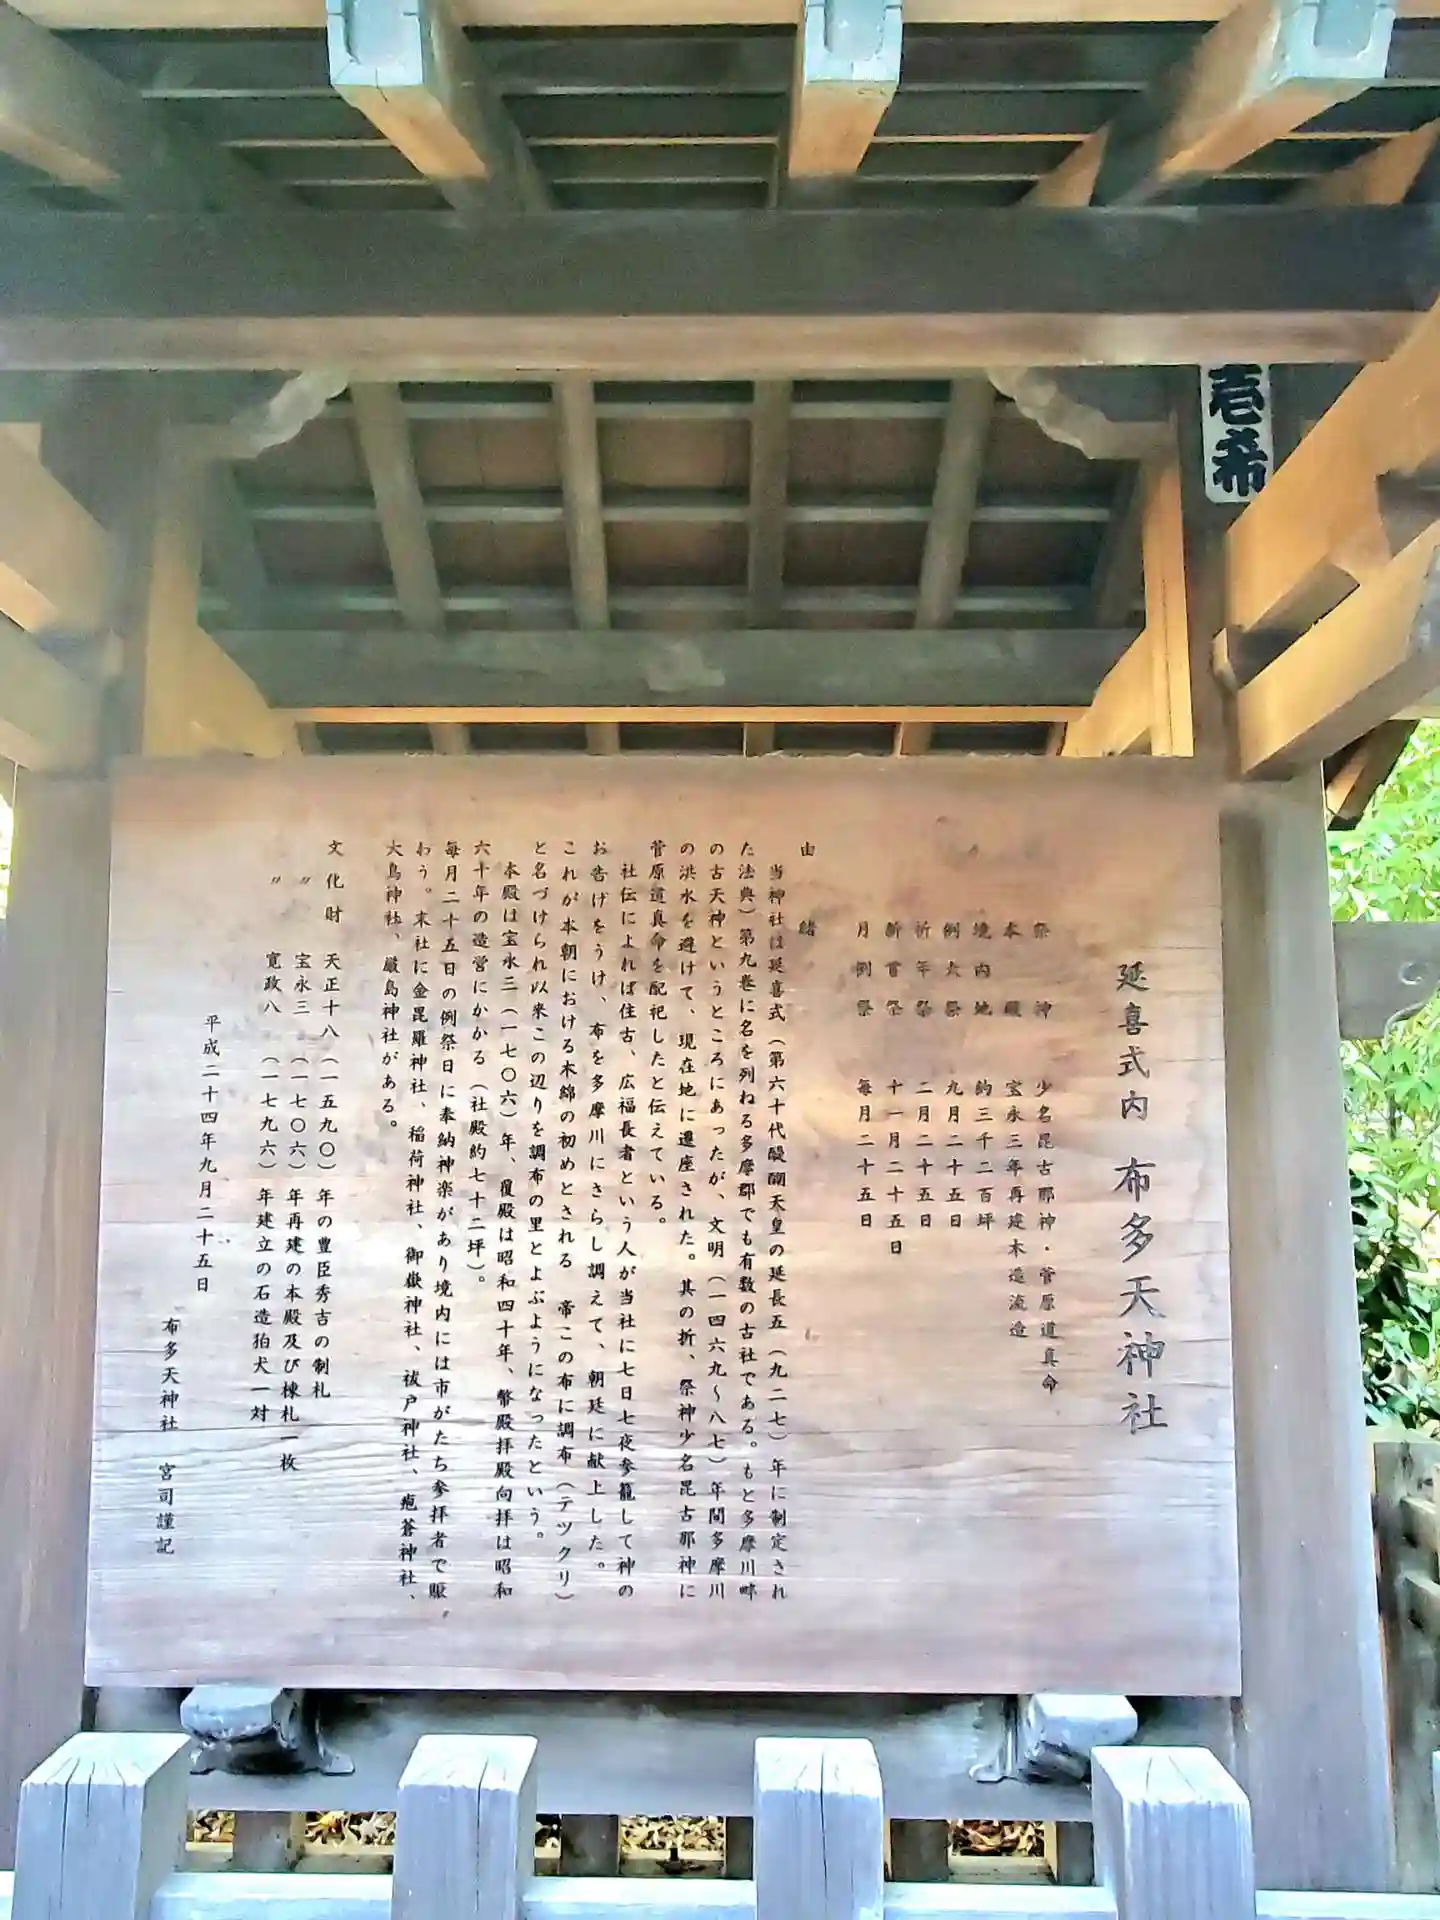 壱希
延喜式内 布多天神社
祭神 少名毘古那神・菅原道真命
本殿 宝永三年再建本造流造
境内地 約三千二百坪
例大祭 九月二十五日
祈年祭 二月二十五日
新嘗祭 十一月二十五日
月例祭 毎月二十五日
由緒
当神社は延喜式（第六十代醍醐天皇の延長五（九二七）年に制定され
た法典）第九巻に名を列ねる多摩郡でも有数の古社である。もと多摩川畔
の古天神というところにあったが、文明（一四六九～八七）年間多摩川
の洪水を避けて、現在地に遷座された。其の折、祭神少名毘古那神に
菅原道真命を配祀したと伝えている。
社伝によれば往古、広福長者という人が当社に七日七夜参籠して神の
お告げをうけ、布を多摩川にさらし調えて、朝廷に献上した。
これが本朝における木綿の初めとされる 帝この布に調布（テツクリ）
と名づけられ以来この辺りを調布の里とよぶようになったという。
本殿は宝永三（一七〇六）年、覆殿は昭和四十年、幣殿拝殿向拝は昭和
六十年の造営にかかる（社殿約七十二坪）。
毎月二十五日の例祭日に奉納神楽があり境内には市がたち参拝者で賑
わう。末社に金毘羅神社、稲荷神社、御嶽神社、祓戸神社、疱蒼神社、
大鳥神社、厳島神社がある。
文化財 天正十八（一五九〇）年の豊臣秀吉の制札
〃 宝永三（一七〇六）年再建の本殿及び棟札一枚
〃 寛政八（一七九六）年建立の石造狛犬一対
平成二十四年九月二十五日
布多天神社 宮司謹記